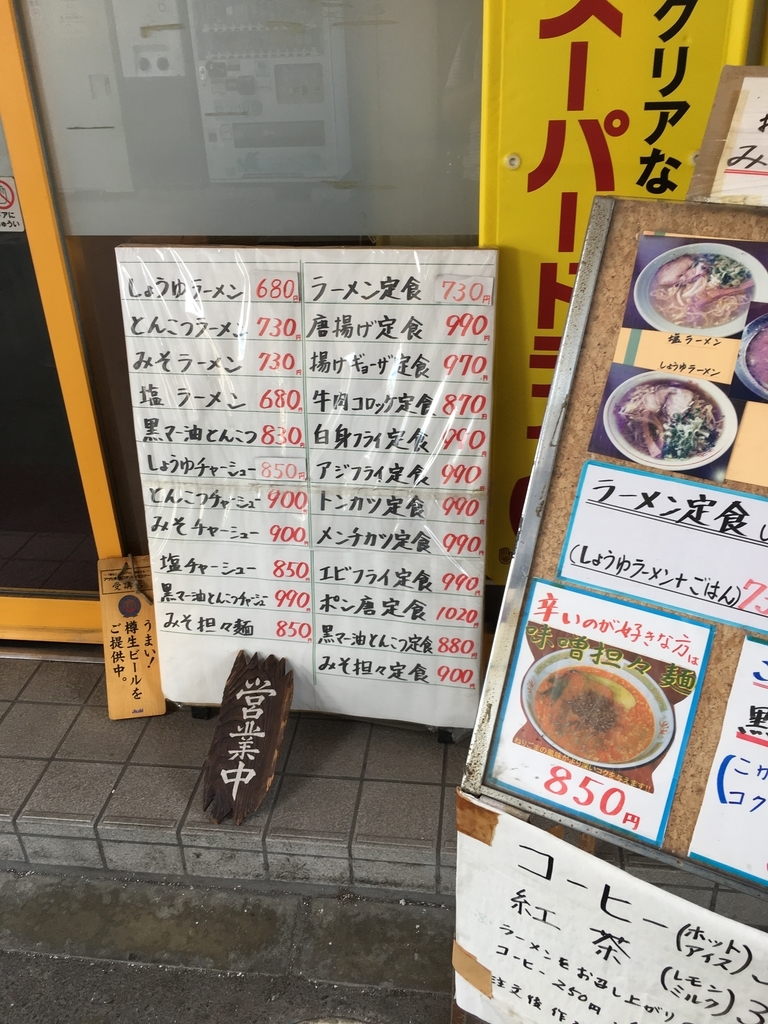 しょうゆラーメン 680円
とんこつラーメン 730円
みそラーメン 730円
塩ラーメン 680円
黒マー油とんこつ 830円
しょうゆチャーシュー 850円
とんこつチャーシュー 900円
みそチャーシュー 900円
塩チャーシュー 850円
黒マー油とんこつチャーシュー 990円
みそ担々麺 850円
ラーメン定食 730円
唐揚げ定食 990円
揚げギョーザ定食 970円
牛肉コロッケ定食 870円
白身フライ定食 990円
アジフライ定食 990円
トンカツ定食 990円
メンチカツ定食 990円
エビフライ定食 990円
ポン唐定食 1020円
黒マー油とんこつ定食 880円
みそ担々定食 900円
営業中
うまい!
樽生ビールを
ご提供中。
Asahi
クリアな
スーパードラ
み
塩ラーメン
しょうゆラーメン
ラーメン定食
(しょうゆラーメン+ごはん)
辛いのが好きな方は
味噌担々麺
850円
コーヒー(ホット アイス)
紅茶(レモン ミルク)
ラーメンをお召し上がり
コーヒー 250円
注文後